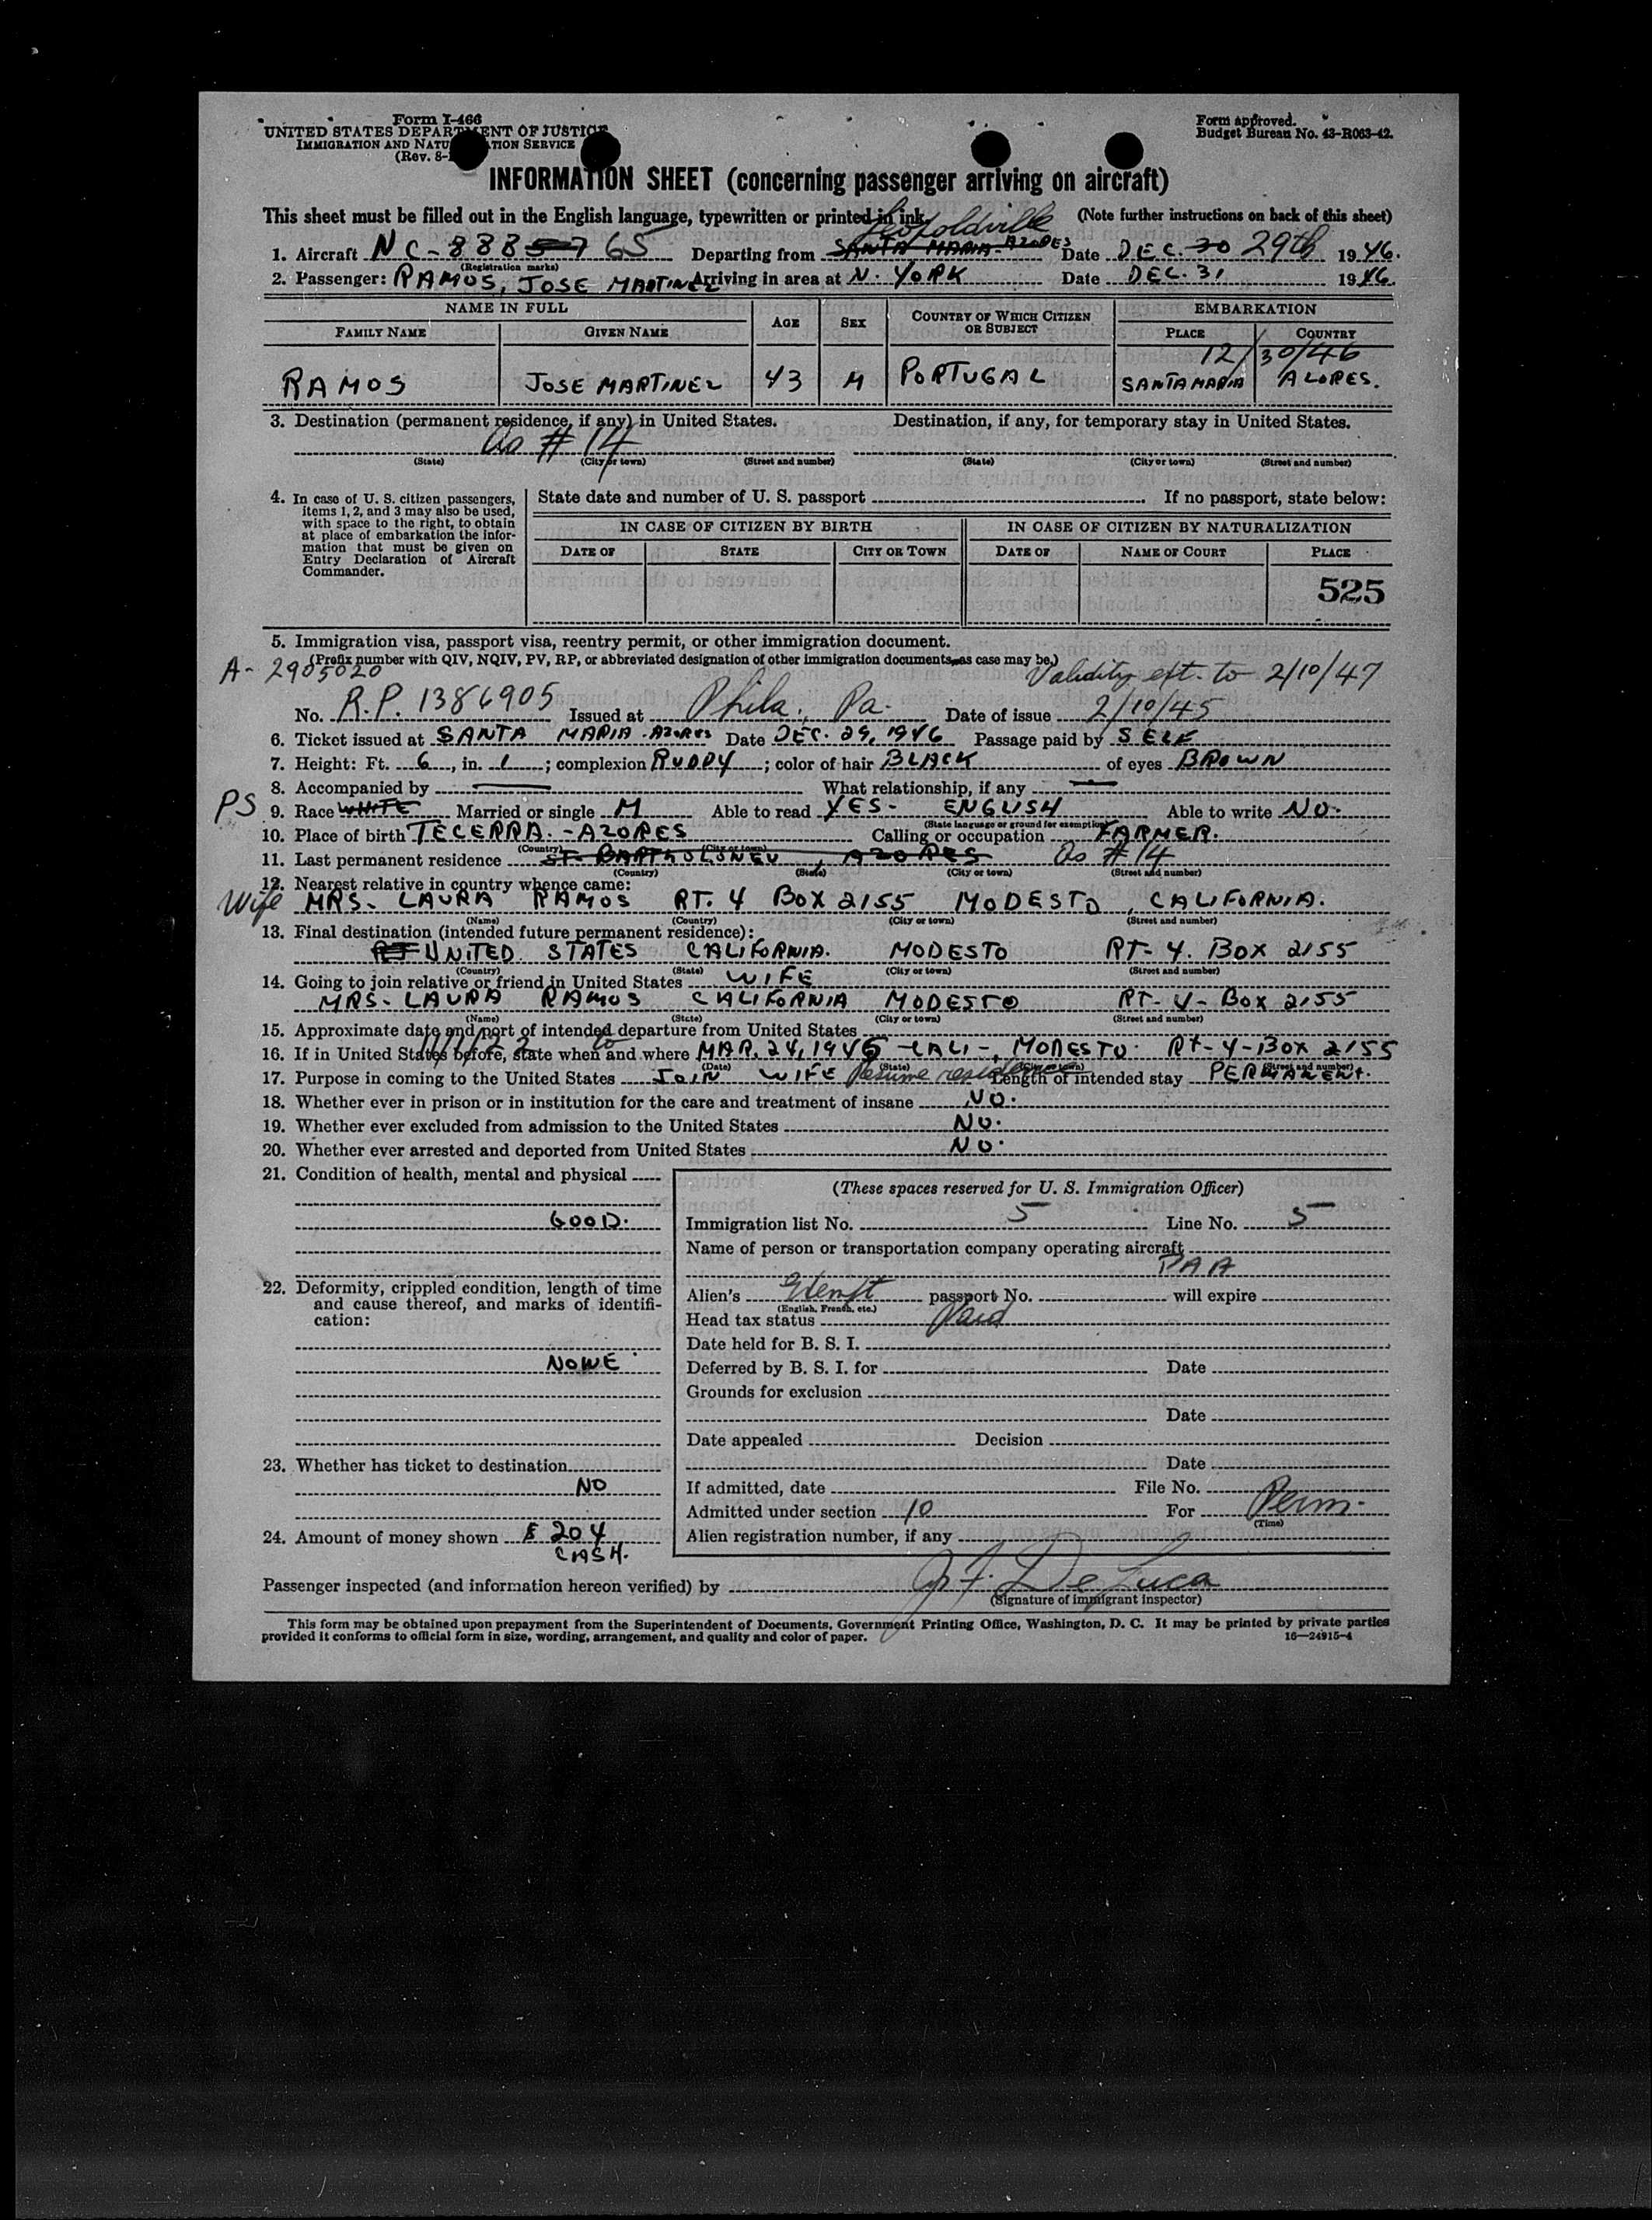 Form I-466
UNITED STATES DEPARTMENT OF JUSTICE
IMMIGRATION AND NATURALIZATION SERVICE
(Rev. 8-
Form approved.
Budget Bureau No. 43-R063-42.
INFORMATION SHEET (concerning passenger arriving on aircraft)
This sheet must be filled out in the English language, typewritten or printed in ink. (Note further instructions on back of this sheet)
Leopoldville
1. Aircraft NC-888 57 65 Departing from SANTA MARIA-AZORES Date DEC. 30 29th 1946.
(Registration marks)
2. Passenger: RAMOS, JOSE MARTINEZ Arriving in area at N. YORK Date DEC. 31 1946.
NAME IN FULL AGE SEX COUNTRY OF WHICH CITIZEN OR SUBJECT EMBARKATION
FAMILY NAME GIVEN NAME PLACE COUNTRY
12/30/46
RAMOS JOSE MARTINEZ 43 M PORTUGAL SANTA MARIA AZORES.
3. Destination (permanent residence, if any) in United States. Destination, if any, for temporary stay in United States.
As # 14
(State) (City or town) (Street and number) (State) (City or town) (Street and number)
4. In case of U. S. citizen passengers, items 1, 2, and 3 may also be used, with space to the right, to obtain at place of embarkation the information that must be given on Entry Declaration of Aircraft Commander.
State date and number of U. S. passport If no passport, state below:
IN CASE OF CITIZEN BY BIRTH IN CASE OF CITIZEN BY NATURALIZATION
DATE OF STATE CITY OR TOWN DATE OF NAME OF COURT PLACE
525
5. Immigration visa, passport visa, reentry permit, or other immigration document.
(Prefix number with QIV, NQIV, PV, RP, or abbreviated designation of other immigration documents, as case may be.)
A- 2905020 Validity ext. to 2/10/47
No. R.P. 1386905 Issued at Phila., Pa. Date of issue 2/10/45
6. Ticket issued at SANTA MARIA-AZORES Date DEC. 29, 1946 Passage paid by SELF
7. Height: Ft. 6, in. 1; complexion RUDDY; color of hair BLACK of eyes BROWN
8. Accompanied by — What relationship, if any —
PS 9. Race WHITE Married or single M Able to read YES- ENGLISH Able to write NO.
(State language or ground for exemption)
10. Place of birth TECERRA.-AZORES Calling or occupation FARMER.
(Country) (City or town)
11. Last permanent residence ST. BARTHOLOMEU, AZORES As # 14
(Country) (State) (City or town) (Street and number)
12. Nearest relative in country whence came:
Wife MRS- LAURA RAMOS RT. 4 BOX 2155 MODESTO, CALIFORNIA.
(Name) (Country) (City or town) (Street and number)
13. Final destination (intended future permanent residence):
UNITED STATES CALIFORNIA. MODESTO RT-4. BOX 2155
(Country) (State) (City or town) (Street and number)
14. Going to join relative or friend in United States WIFE
MRS- LAURA RAMOS CALIFORNIA MODESTO RT-4-BOX 2155
(Name) (State) (City or town) (Street and number)
15. Approximate date and port of intended departure from United States
to
16. If in United States before, state when and where MAR. 24, 1945 -CALI-, MODESTO. RT-4-BOX 2155
(Date) (State) (City or town) (Street and number)
17. Purpose in coming to the United States JOIN WIFE Resume residence Length of intended stay PERMANENT.
18. Whether ever in prison or in institution for the care and treatment of insane NO.
19. Whether ever excluded from admission to the United States NO.
20. Whether ever arrested and deported from United States NO.
21. Condition of health, mental and physical
GOOD.
22. Deformity, crippled condition, length of time and cause thereof, and marks of identification:
NONE
23. Whether has ticket to destination
NO
24. Amount of money shown $ 204
CASH.
(These spaces reserved for U. S. Immigration Officer)
Immigration list No. 5 Line No. 5
Name of person or transportation company operating aircraft
PAA
Alien's passport No. will expire
(English, French, etc.)
Head tax status Paid
Date held for B. S. I.
Deferred by B. S. I. for Date
Grounds for exclusion
Date
Date appealed Decision
Date
If admitted, date File No.
Admitted under section 10 For Perm.
(Time)
Alien registration number, if any
Passenger inspected (and information hereon verified) by De Luca
(Signature of immigrant inspector)
This form may be obtained upon prepayment from the Superintendent of Documents, Government Printing Office, Washington, D. C. It may be printed by private parties
provided it conforms to official form in size, wording, arrangement, and quality and color of paper. 16—24915-4